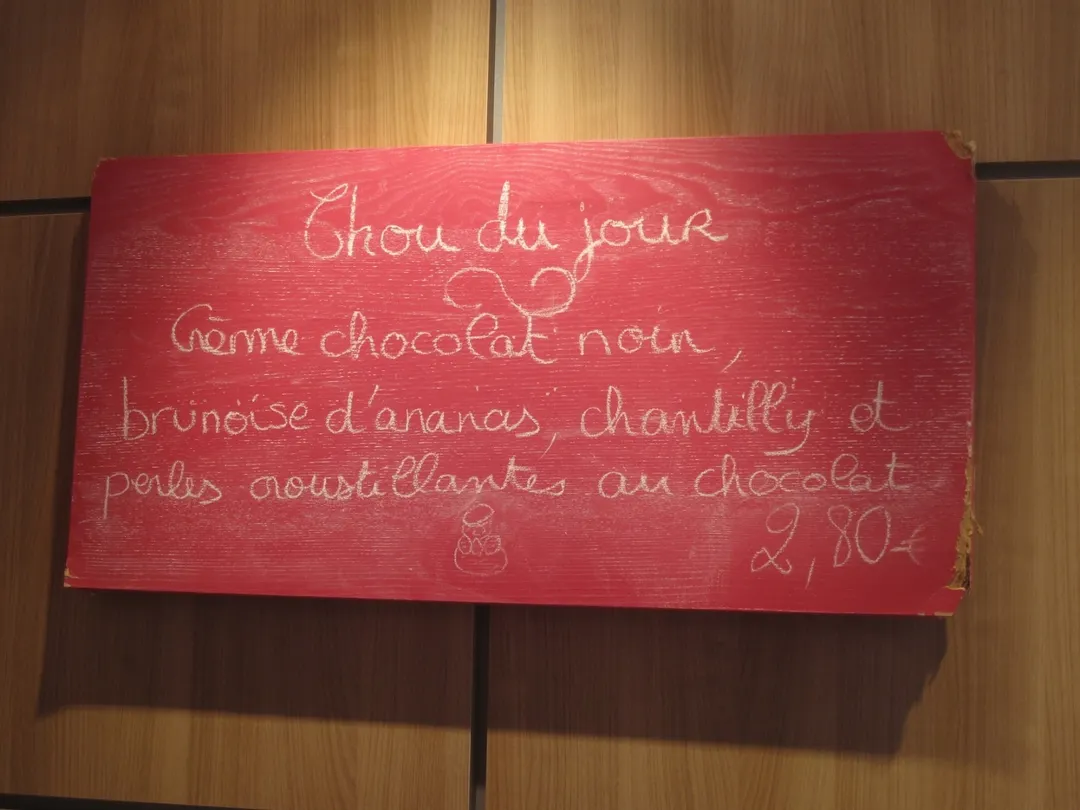 Chou du jour
Crème chocolat noir,
brunoise d'ananas, chantilly et
perles croustillantes au chocolat
2,80€